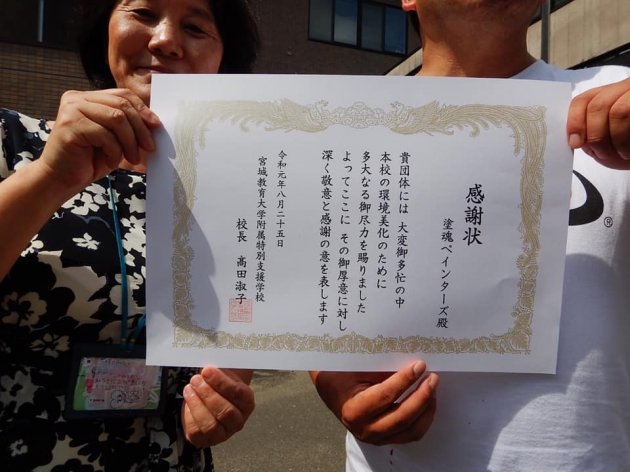 感謝状
塗魂ペインターズ殿
貴団体には 大変御多忙の中
本校の環境美化のために
多大なる御尽力を賜りました
よってここに その御厚意に対し
深く敬意と感謝の意を表します
令和元年八月二十五日
宮城教育大学附属特別支援学校
校長 高田淑子